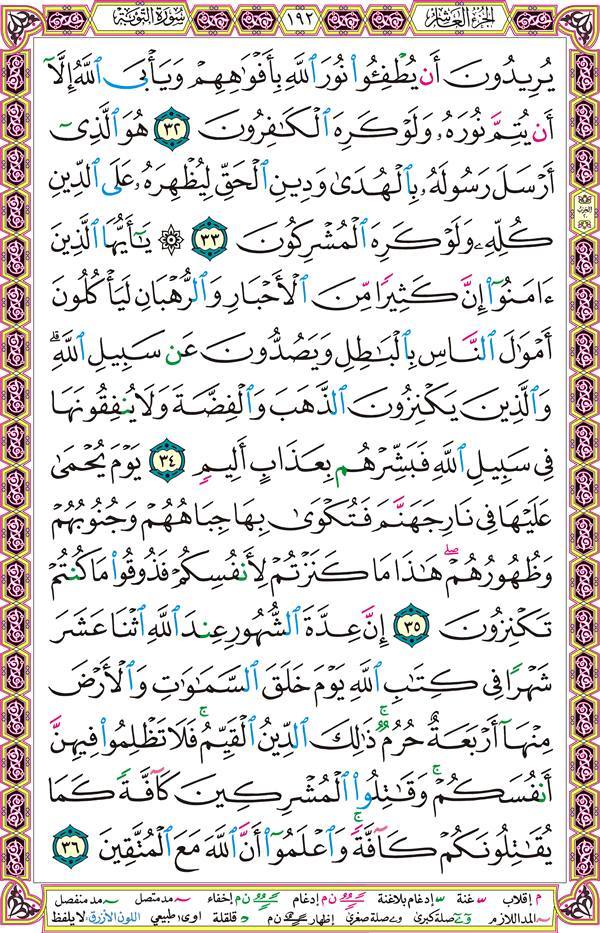 الجزء العاشر ١٩٢ سورة التوبة
يُرِيدُونَ أَن يُطْفِـُٔوا۟ نُورَ ٱللَّهِ بِأَفْوَٰهِهِمْ وَيَأْبَى ٱللَّهُ إِلَّآ
أَن يُتِمَّ نُورَهُۥ وَلَوْ كَرِهَ ٱلْكَٰفِرُونَ ٣٢ هُوَ ٱلَّذِىٓ
أَرْسَلَ رَسُولَهُۥ بِٱلْهُدَىٰ وَدِينِ ٱلْحَقِّ لِيُظْهِرَهُۥ عَلَى ٱلدِّينِ
كُلِّهِۦ وَلَوْ كَرِهَ ٱلْمُشْرِكُونَ ٣٣ ۞ يَٰٓأَيُّهَا ٱلَّذِينَ
ءَامَنُوٓا۟ إِنَّ كَثِيرًا مِّنَ ٱلْأَحْبَارِ وَٱلرُّهْبَانِ لَيَأْكُلُونَ
أَمْوَٰلَ ٱلنَّاسِ بِٱلْبَٰطِلِ وَيَصُدُّونَ عَن سَبِيلِ ٱللَّهِ ۗ
وَٱلَّذِينَ يَكْنِزُونَ ٱلذَّهَبَ وَٱلْفِضَّةَ وَلَا يُنفِقُونَهَا
فِى سَبِيلِ ٱللَّهِ فَبَشِّرْهُم بِعَذَابٍ أَلِيمٍ ٣٤ يَوْمَ يُحْمَىٰ
عَلَيْهَا فِى نَارِ جَهَنَّمَ فَتُكْوَىٰ بِهَا جِبَاهُهُمْ وَجُنُوبُهُمْ
وَظُهُورُهُمْ ۖ هَٰذَا مَا كَنَزْتُمْ لِأَنفُسِكُمْ فَذُوقُوا۟ مَا كُنتُمْ
تَكْنِزُونَ ٣٥ إِنَّ عِدَّةَ ٱلشُّهُورِ عِندَ ٱللَّهِ ٱثْنَا عَشَرَ
شَهْرًا فِى كِتَٰبِ ٱللَّهِ يَوْمَ خَلَقَ ٱلسَّمَٰوَٰتِ وَٱلْأَرْضَ
مِنْهَآ أَرْبَعَةٌ حُرُمٌ ۚ ذَٰلِكَ ٱلدِّينُ ٱلْقَيِّمُ ۚ فَلَا تَظْلِمُوا۟ فِيهِنَّ
أَنفُسَكُمْ ۚ وَقَٰتِلُوا۟ ٱلْمُشْرِكِينَ كَآفَّةً كَمَا
يُقَٰتِلُونَكُمْ كَآفَّةً ۚ وَٱعْلَمُوٓا۟ أَنَّ ٱللَّهَ مَعَ ٱلْمُتَّقِينَ ٣٦
م إقلاب غنة إدغام بلاغنة ن م إدغام ن م إخفاء مد متصل مد منفصل
المد اللازم صلة كبرى صلة صغرى إظهار ن م قلقلة اوى طبيعي اللون الأزرق لا يلفظ